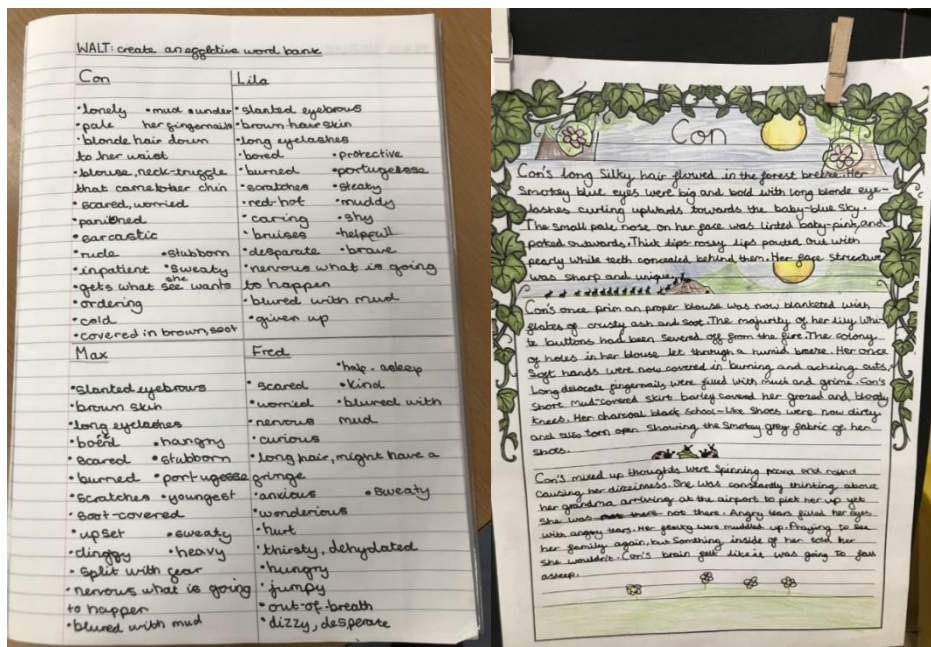 WALT: create an effective word bank
Con
•lonely •mud •under
•pale her fingernails
•blonde hair down
to her waist
•blouse, neck-truggle
that came to her chin
•scared, worried
•panicked
•sarcastic
•rude •stubborn
•inpatient •sweaty
•gets what she wants
•ordering
•cold
•covered in brown, soot
Lila
•slanted eyebrows
•brown hair skin
•long eyelashes
•bored •protective
•burned •portugesse
•scratches •steaty
•red-hot •muddy
•caring •shy
•bruises •helpfull
•desparate •brave
•nervous what is going
to happen
•blured with mud
•given up
Max
•slanted eyebrows
•brown skin
•long eyelashes
•bored •hangry
•scared •stubborn
•burned •portugesse
•scratches •youngest
•soot-covered
•upset •sweaty
•clinggy •heavy
•split with fear
•nervous what is going
to happen
•blured with mud
Fred
•half-asleep
•scared •kind
•worried •blured with
•nervous mud
•curious
•long hair, might have a
fringe
•anxious •sweaty
•wonderious
•hurt
•thirsty, dehydated
•hungry
•jumpy
•out-of-breath
•dizzy, desperate
Con
Con's long silky hair flowed in the forest breeze. Her
smokey blue eyes were big and bold with long blonde eye-
lashes curling upwards towards the baby-blue sky.
The small pale nose on her face was tinted baby-pink and
poked outwards. Thick lips rossy lips pouted out with
pearly white teeth concealed behind them. Her face structure
was sharp and unique.
Con's once prim an proper blouse was now blanketed with
flakes of crusty ash and soot. The majority of her lily whi-
te buttons had been severed off from the fire. The colony
of holes in her blouse let through a humid breeze. Her once
soft hands were now covered in burning and acheing cuts,
Long delocate fingernails were filled with muck and grime. Con's
short mud-covered skirt barley covered her grazed and bloody
knees. Her charcoal black school-like shoes were now dirty
and also torn open showing the smokey grey fabric of her
shoes.
Con's mixed up thoughts were spinning round and round
causing her dizzieness. She was constantly thinking above
her grandma arriving at the airport to pick her up yet
she was not there. Angry tears filled her eyes
with angry tears. Her feelings were muddled up. Praying to see
her family again, but something inside of her told her
she wouldn't. Con's brain felt like it was going to fall
asleep.